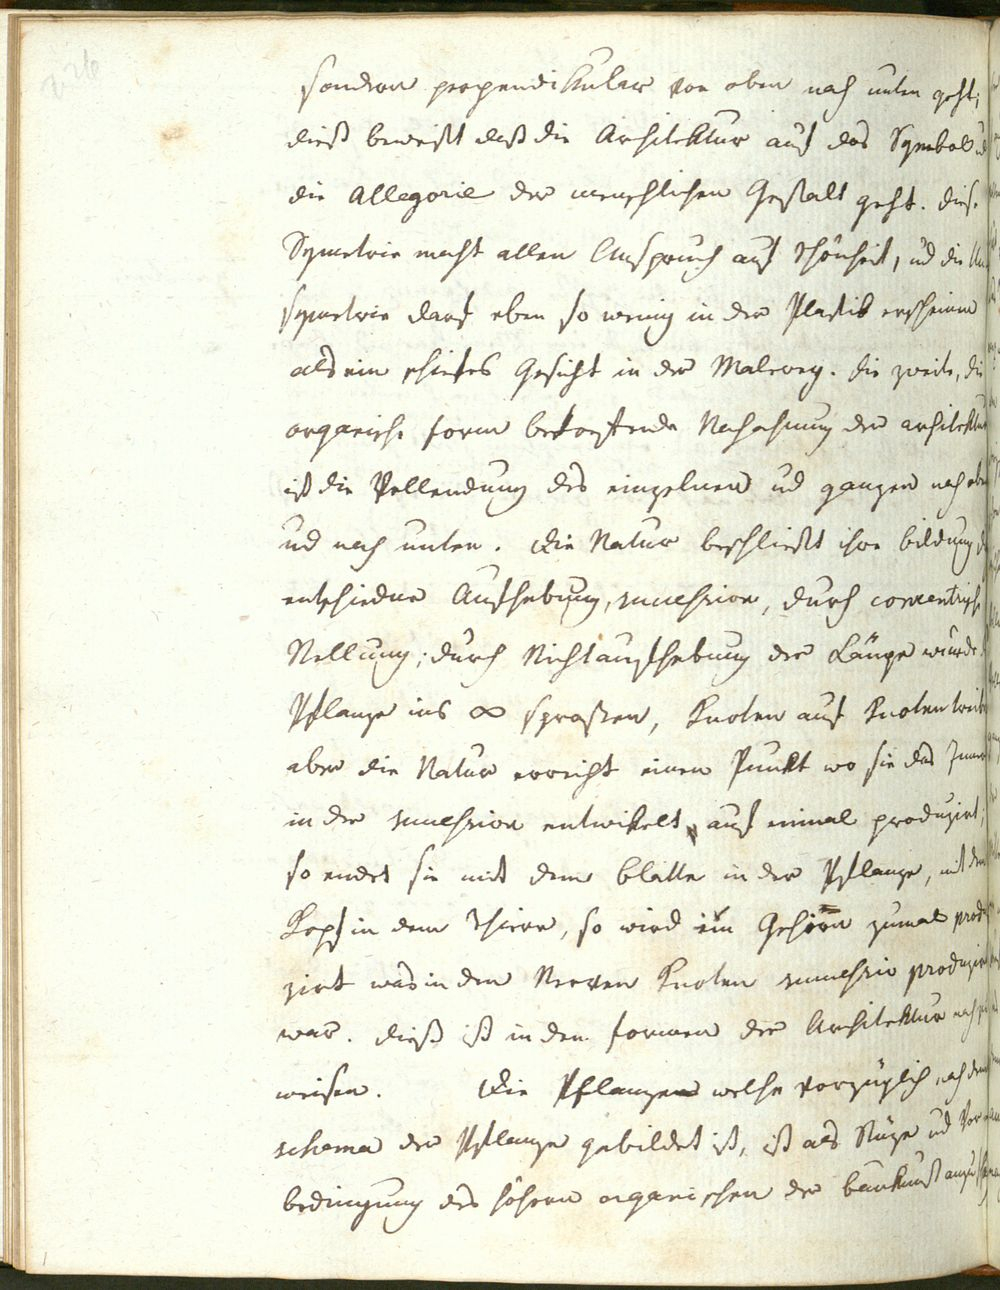 sondern perpendikular von oben nach unten geht;
dieß beweißt daß die Architektur auf das Symbol ud
die Allegorie der menschlichen Gestalt geht. diese
Symetrie macht allen Anspruch auf Schönheit, ud die Un
symetrie darf eben so wenig in der Plastik erscheinen
als ein schiefes Gesicht in der Malerey. die zweite, die
organische form betreffende Nachahmung der architektur
ist die Vollendung des einzelnen ud ganzen nach oben
ud nach unten. Die Natur beschließt ihre bildung d
entschiedne Aufhebung, succession, durch concentrische
Stellung; durch Nichtaufhebung der Länge würde
Pflanze ins ∞ sprossen, Knoten auf Knoten treib
aber die Natur erreicht einen Punkt wo sie das Inner
in der succession entwikelt, auf einmal produzirt,
so endet sie mit dem blatte in der Pflanze, mit dem
Kopf in dem Thiere, so wird im Gehirn zumal produ
zirt was in den Nerven Knoten successiv produzirt
war. dieß ist in den formen der Architektur nachzu
weisen. Die Pflanzen welche vorzüglich nach dem
schema der Pflanze gebildet ist, ist als Stüze ud Vor
bedingung des höhern organischen der baukunst anzusehen